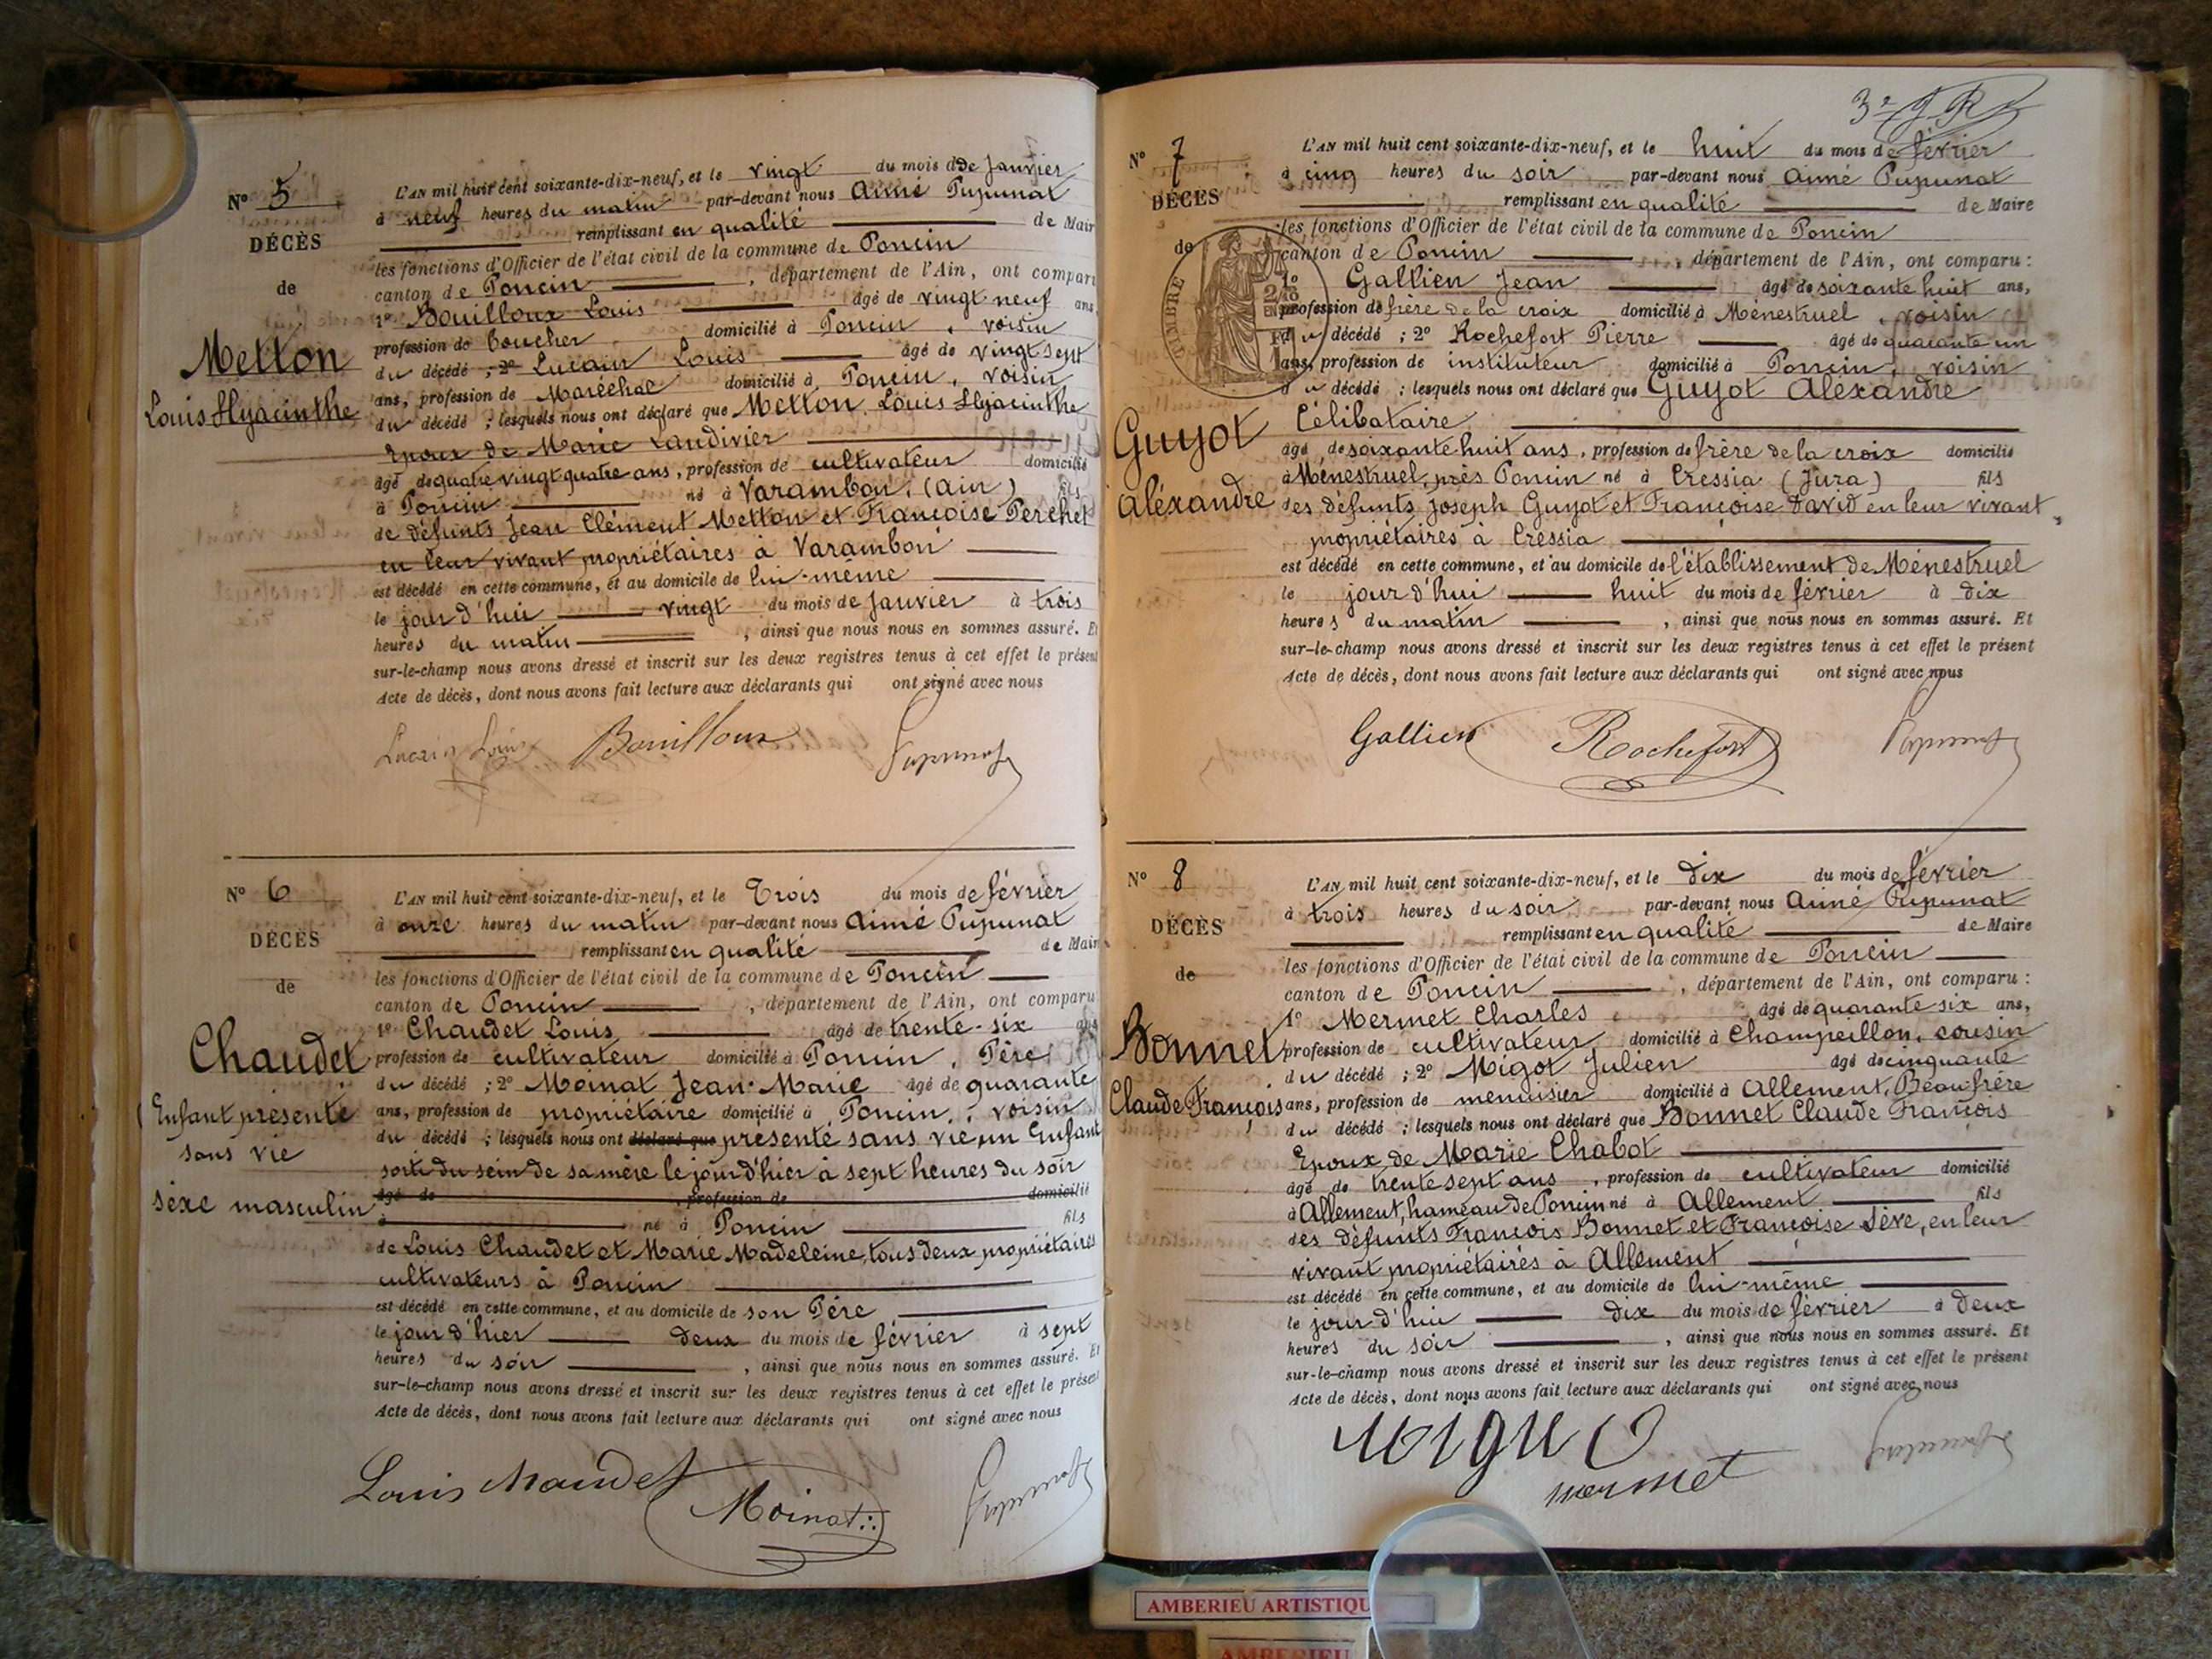 Nº 5
DÉCÈS
de
Metton
Louis Hyacinthe
L'AN mil huit cent soixante-dix-neuf, et le vingt du mois de Janvier
à neuf heures du matin par-devant nous Aimé Pupunat
remplissant en qualité de Mair
les fonctions d'Officier de l'état civil de la commune de Poncin
canton de Poncin, département de l'Ain, ont comparu
1º Bouilloux Louis âgé de vingt neuf ans
profession de boucher domicilié à Poncin, voisin
du décédé ; 2º Lucain Louis âgé de vingt sept
ans, profession de Maréchal domicilié à Poncin, voisin
du décédé ; lesquels nous ont déclaré que Metton Louis Hyacinthe
Epoux de Marie Landivier
âgé de quatre vingt quatre ans, profession de cultivateur domicilié
à Poncin né à Varambon, (Ain) fils
de défunts Jean Clément Metton et Françoise Perchet
en leur vivant propriétaires à Varambon
est décédé en cette commune, et au domicile de lui-même
le jour d'hui vingt du mois de Janvier à trois
heures du matin, ainsi que nous nous en sommes assuré. Et
sur-le-champ nous avons dressé et inscrit sur les deux registres tenus à cet effet le présent
Acte de décès, dont nous avons fait lecture aux déclarants qui ont signé avec nous
Lucain Louis Bouilloux Pupunat
Nº 6
DÉCÈS
de
Chaudet
Enfant présenté
sans vie
sexe masculin
L'AN mil huit cent soixante-dix-neuf, et le Trois du mois de février
à onze heures du matin par-devant nous Aimé Pupunat
remplissant en qualité de Mair
les fonctions d'Officier de l'état civil de la commune de Poncin
canton de Poncin, département de l'Ain, ont comparu
1º Chaudet Louis âgé de trente-six ans
profession de cultivateur domicilié à Poncin, Père
du décédé ; 2º Moinat Jean-Marie âgé de quarante
ans, profession de propriétaire domicilié à Poncin, voisin
du décédé ; lesquels nous ont déclaré que présenté sans vie, un Enfant
sorti du sein de sa mère le jour d'hier à sept heures du soir
âgé de, profession de domicilié
à né à Poncin fils
de Louis Chaudet et Marie Madeleine, tous deux propriétaires
cultivateurs à Poncin
est décédé en cette commune, et au domicile de son Père
le jour d'hier deux du mois de février à sept
heures du soir, ainsi que nous nous en sommes assuré. Et
sur-le-champ nous avons dressé et inscrit sur les deux registres tenus à cet effet le présent
Acte de décès, dont nous avons fait lecture aux déclarants qui ont signé avec nous
Louis Chaudet Moinat Pupunat
3e
Nº 7
DÉCÈS
de
TIMBRE
Guyot
Aléxandre
L'AN mil huit cent soixante-dix-neuf, et le huit du mois de février
à cinq heures du soir par-devant nous Aimé Pupunat
remplissant en qualité de Maire
les fonctions d'Officier de l'état civil de la commune de Poncin
canton de Poncin, département de l'Ain, ont comparu :
1º Gallien Jean âgé de soixante huit ans,
profession de frère de la croix domicilié à Ménestruel, voisin
du décédé ; 2º Rochefort Pierre âgé de quarante un
ans, profession de instituteur domicilié à Poncin, voisin
du décédé ; lesquels nous ont déclaré que Guyot Aléxandre
Célibataire
âgé de soixante huit ans, profession de frère de la croix domicilié
à Ménestruel, près Poncin né à Cressia (Jura) fils
des défunts Joseph Guyot et Françoise David en leur vivant
propriétaires à Cressia
est décédé en cette commune, et au domicile de l'établissement de Ménestruel
le jour d'hui huit du mois de février à dix
heures du matin, ainsi que nous nous en sommes assuré. Et
sur-le-champ nous avons dressé et inscrit sur les deux registres tenus à cet effet le présent
Acte de décès, dont nous avons fait lecture aux déclarants qui ont signé avec nous
Gallien Rochefort Pupunat
Nº 8
DÉCÈS
de
Bonnet
Claude François
L'AN mil huit cent soixante-dix-neuf, et le dix du mois de février
à trois heures du soir par-devant nous Aimé Pupunat
remplissant en qualité de Maire
les fonctions d'Officier de l'état civil de la commune de Poncin
canton de Poncin, département de l'Ain, ont comparu :
1º Mermet Charles âgé de quarante six ans,
profession de cultivateur domicilié à Champeillon, cousin
du décédé ; 2º Migot Julien âgé de cinquante
ans, profession de menuisier domicilié à Allement, Beau frère
du décédé ; lesquels nous ont déclaré que Bonnet Claude François
Epoux de Marie Chabot
âgé de trente sept ans, profession de cultivateur domicilié
à Allement, hameau de Poncin né à Allement fils
des défunts François Bonnet et Françoise Sève, en leur
vivant propriétaires à Allement
est décédé en cette commune, et au domicile de lui-même
le jour d'hui dix du mois de février à deux
heures du soir, ainsi que nous nous en sommes assuré. Et
sur-le-champ nous avons dressé et inscrit sur les deux registres tenus à cet effet le présent
Acte de décès, dont nous avons fait lecture aux déclarants qui ont signé avec nous
mermet
AMBERIEU ARTISTIQU
AMBERIEU